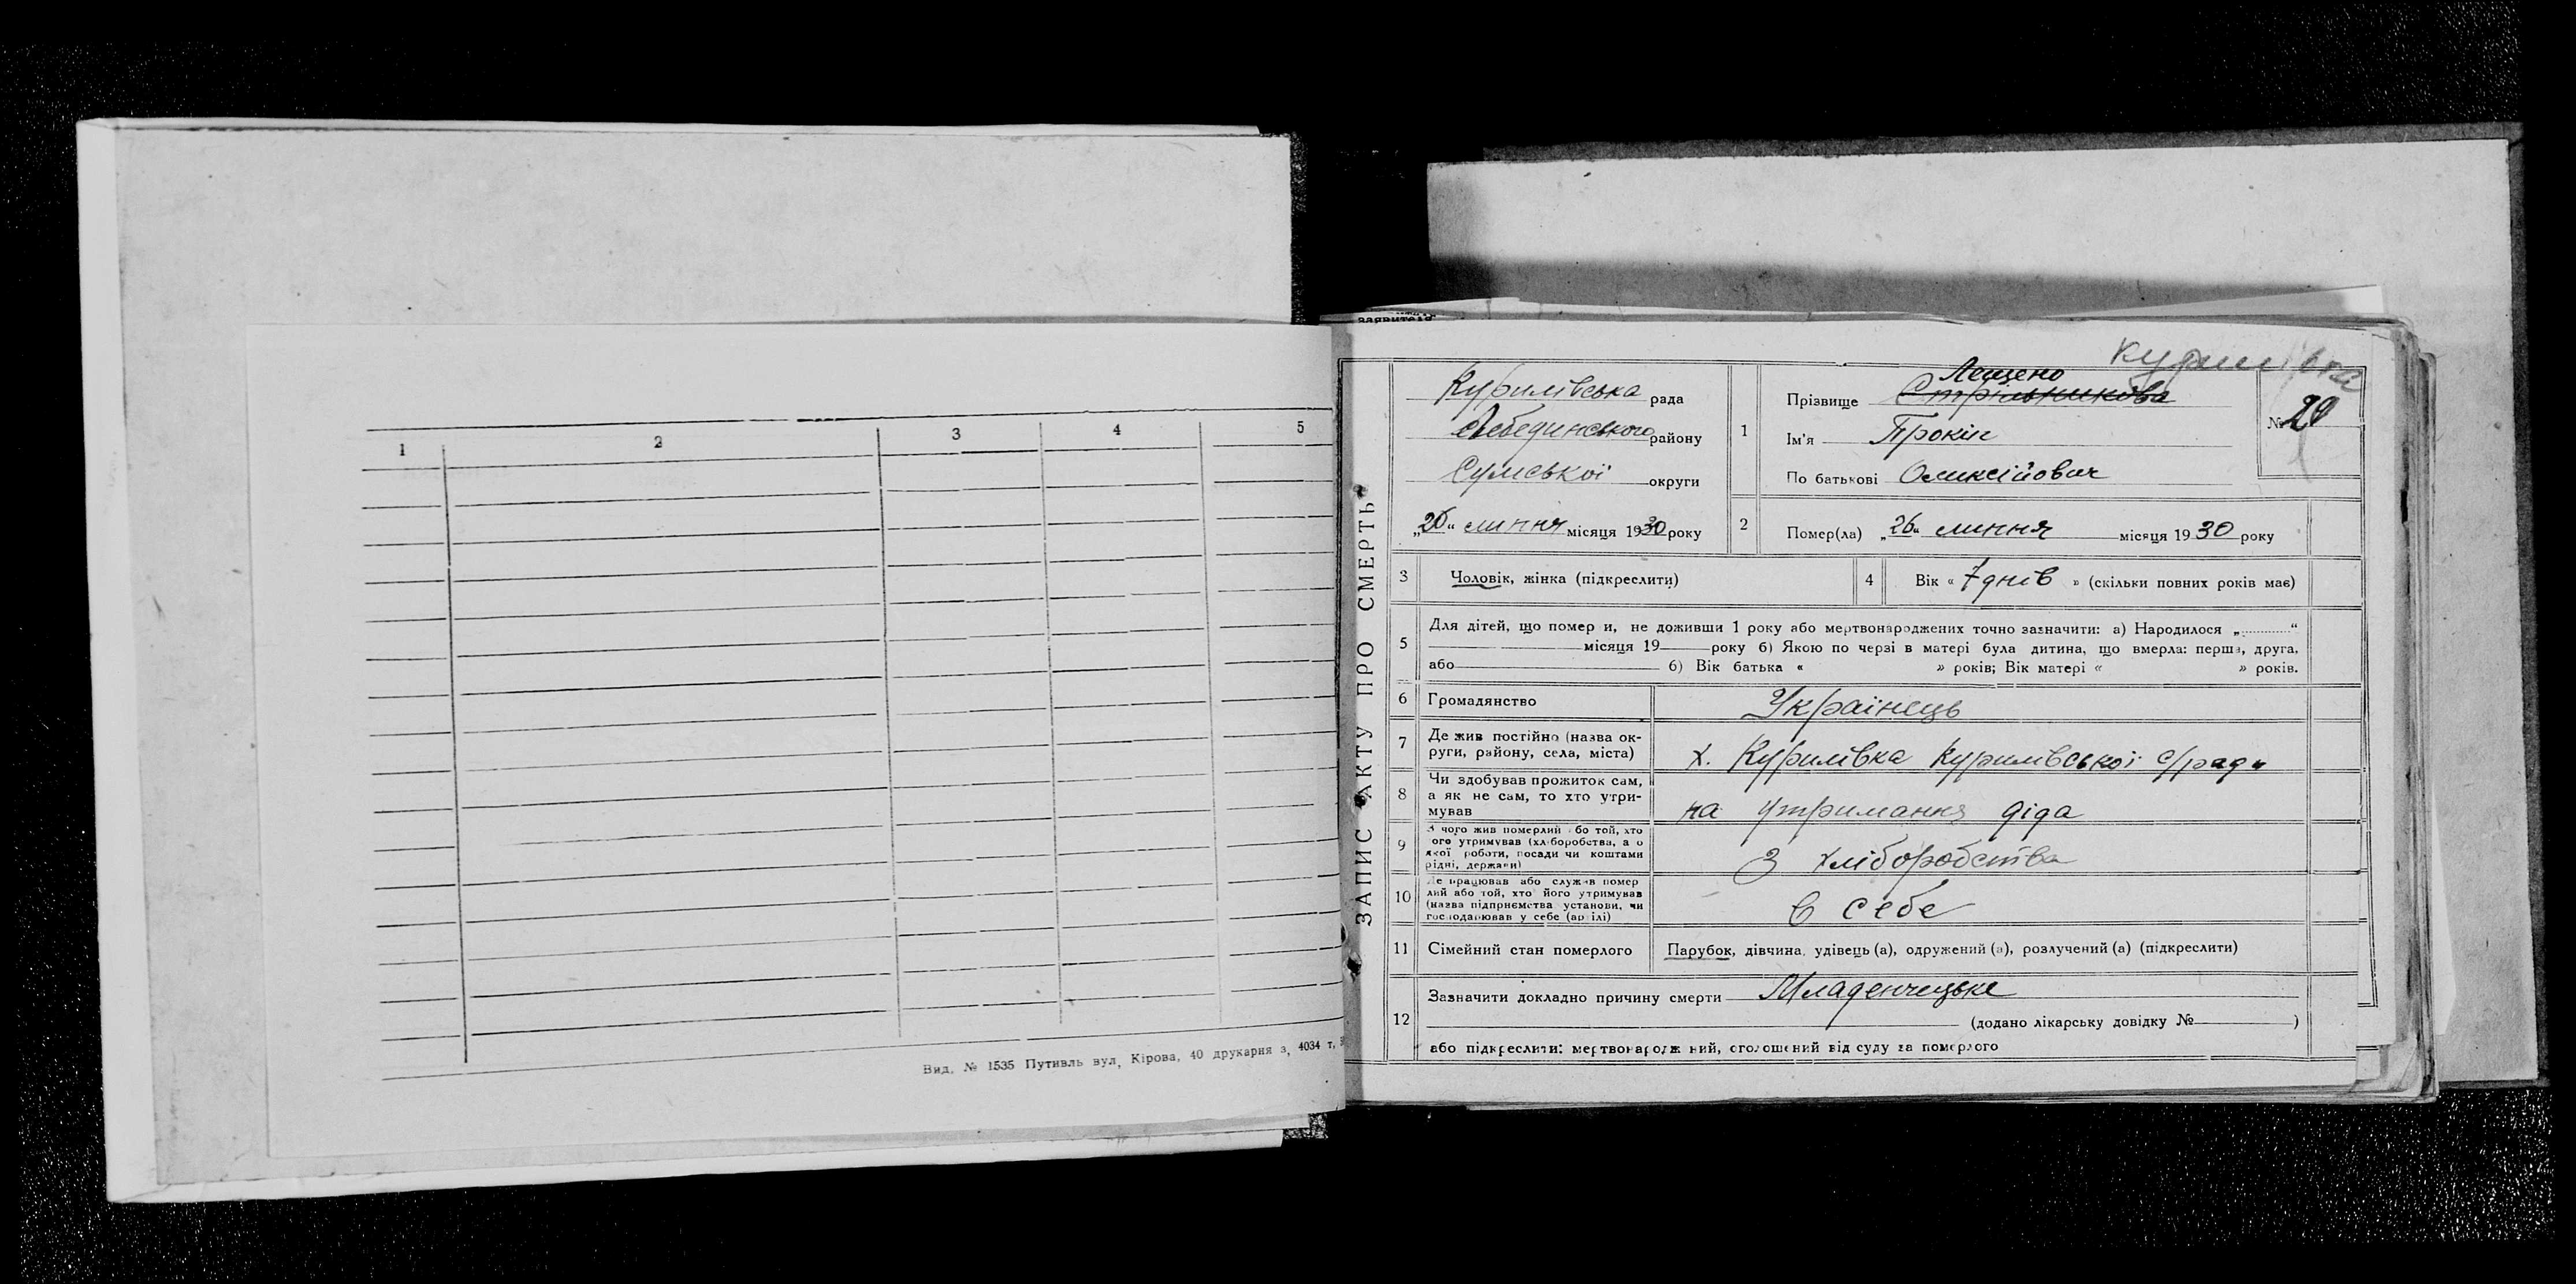 1 2 3 4 5
Вид. № 1535 Путивль вул. Кірова, 40 друкарня з. 4034 т.
заявителя
ЗАПИС АКТУ ПРО СМЕРТЬ
Курилівка
Курилівська рада
Лебединського району
Сумської округи
„26“ липня місяця 1930 року
1
Лещено
Прізвище Стрільникова
Ім'я Прокіп
По батькові Оликсійович
№ 20
2 Помер(ла) „26“ липня місяця 1930 року
3 Чоловік, жінка (підкреслити)
4 Вік « 7 днів » (скільки повних років має)
5 Для дітей, що помер и, не доживши 1 року або мертвонароджених точно зазначити: а) Народилося „ “
місяця 19 року б) Якою по черзі в матері була дитина, що вмерла: перша, друга,
або б) Вік батька « » років; Вік матері « » років.
6 Громадянство Українець
7 Де жив постійно (назва ок-
руги, району, села, міста) х. Курилівка Курилівської с/ради
8 Чи здобував прожиток сам,
а як не сам, то хто утри-
мував на утримання діда
9 З чого жив померлий або той, хто
ого утримував (хліборобства, а о
якої роботи, посади чи коштами
рідні, держави) З хліборобства
10 Де працював або служив помер
лий або той, хто його утримував
(назва підприємства установи, чи
господарював у себе (артілі) в себе
11 Сімейний стан померлого Парубок, дівчина, удівець (а), одружений (а), розлучений (а) (підкреслити)
12 Зазначити докладно причину смерти Младенчецьке
(додано лікарську довідку № )
або підкреслити: мертвонародж ний, оголошений від суду за померлого